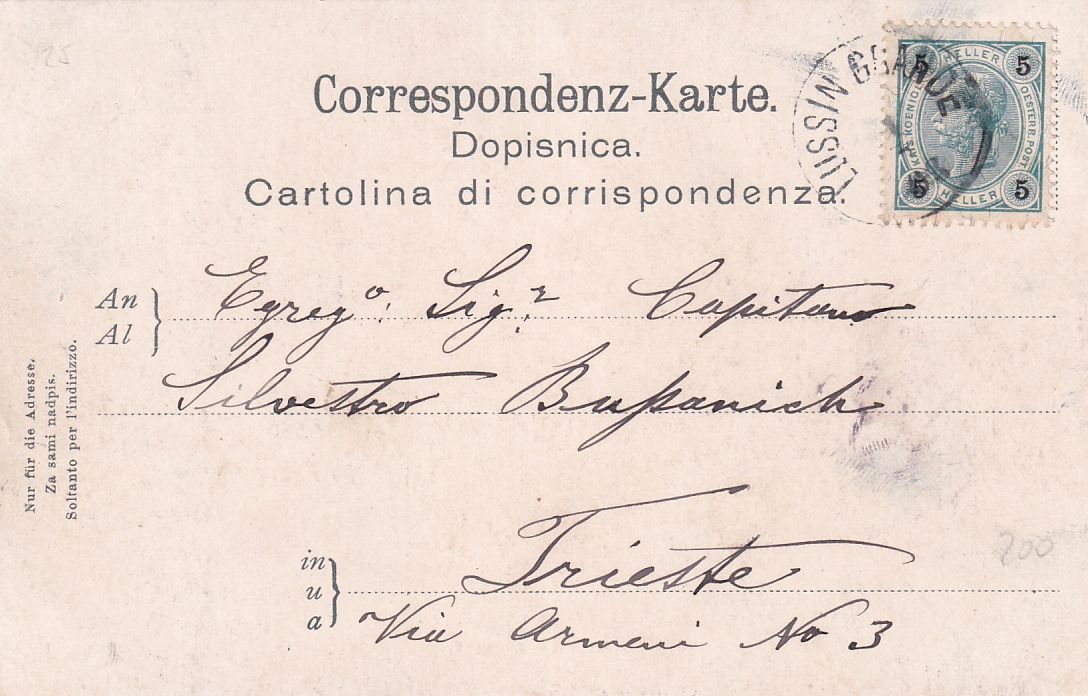 25
Correspondenz-Karte.
Dopisnica.
Cartolina di corrispondenza.
LUSSIN GRANDE
5 HELLER 5
KAIS. KOENIGL. OESTERR. POST
5 HELLER 5
An
Al
Egreg.º Sig.r Capitano
Silvestro Bussanich
Nur für die Adresse.
Za sami nadpis.
Soltanto per l'indirizzo.
200
in
u
a
Trieste
Via Armeni No 3